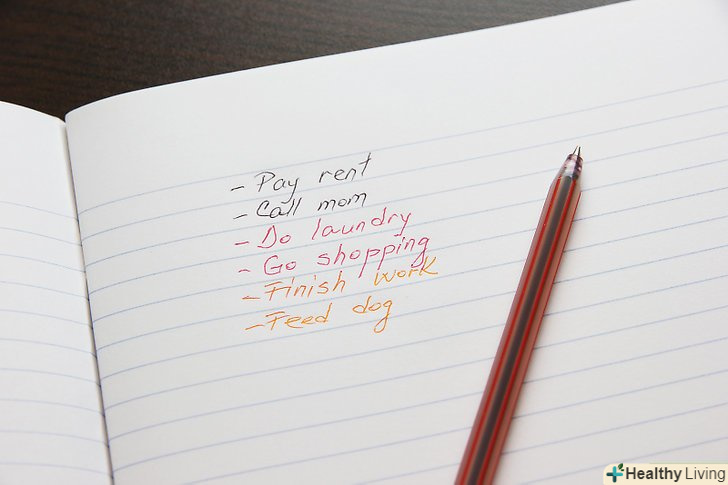 - Pay rent
- Call mom
- Do laundry
- Go shopping
- Finish work
- Feed dog
Healthy Living